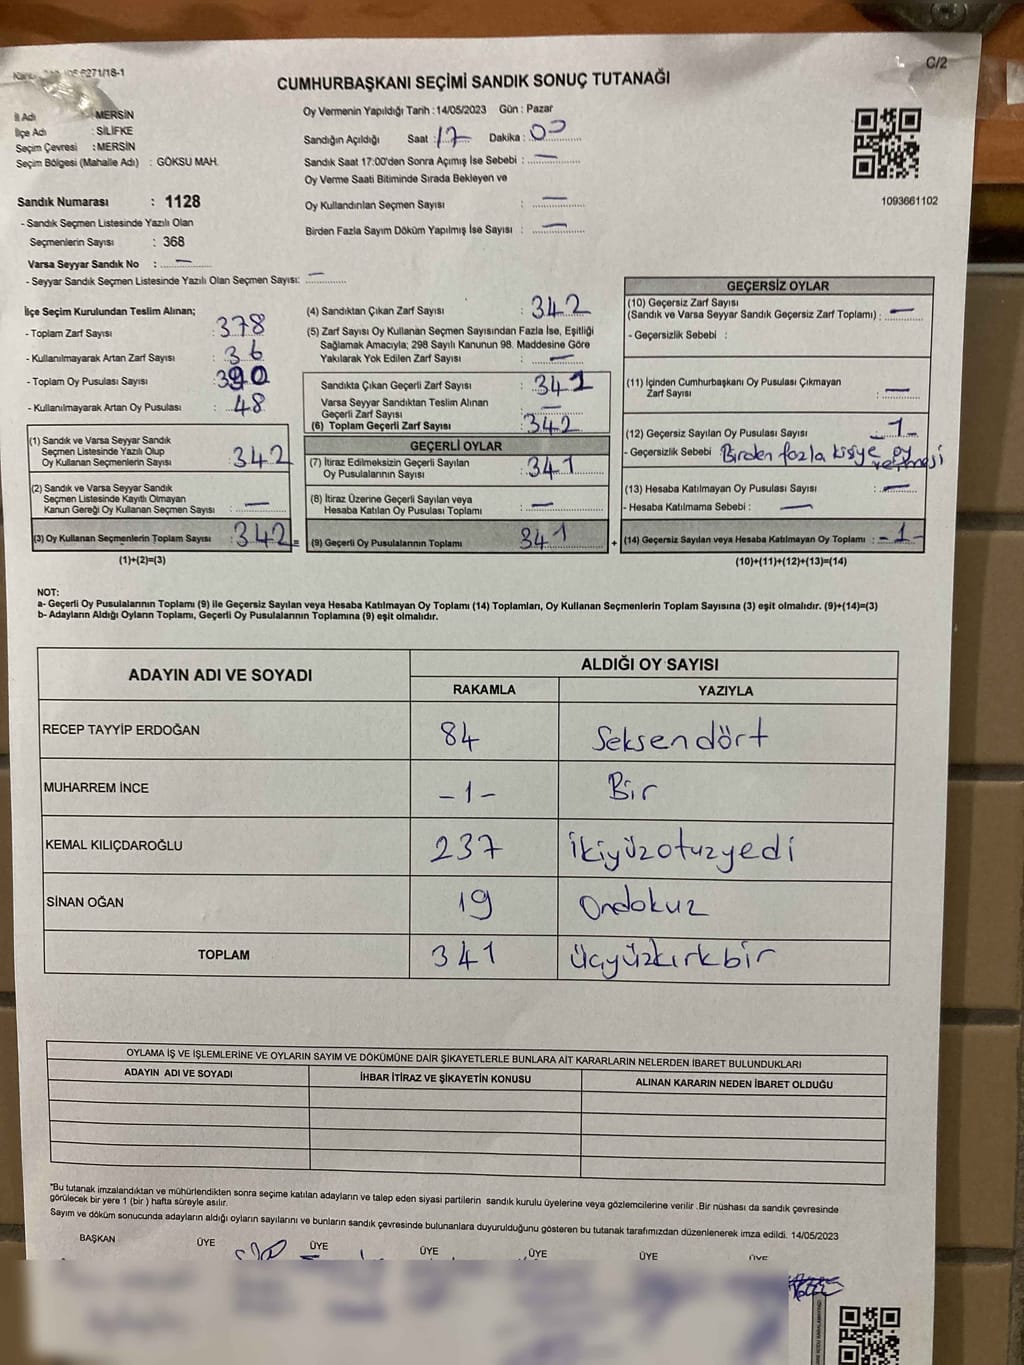 271/18-1
C/2
CUMHURBAŞKANI SEÇİMİ SANDIK SONUÇ TUTANAĞI
İl Adı : MERSİN
İlçe Adı : SİLİFKE
Seçim Çevresi : MERSİN
Seçim Bölgesi (Mahalle Adı) : GÖKSU MAH.
Oy Vermenin Yapıldığı Tarih : 14/05/2023 Gün : Pazar
Sandığın Açıldığı Saat : 17 Dakika : 00
Sandık Saat 17:00'den Sonra Açılmış İse Sebebi : —
Oy Verme Saati Bitiminde Sırada Bekleyen ve
Oy Kullandırılan Seçmen Sayısı : —
Birden Fazla Sayım Döküm Yapılmış İse Sayısı : —
1093661102
Sandık Numarası : 1128
- Sandık Seçmen Listesinde Yazılı Olan
Seçmenlerin Sayısı : 368
Varsa Seyyar Sandık No : —
- Seyyar Sandık Seçmen Listesinde Yazılı Olan Seçmen Sayısı: —
İlçe Seçim Kurulundan Teslim Alınan;
- Toplam Zarf Sayısı : 378
- Kullanılmayarak Artan Zarf Sayısı : 36
- Toplam Oy Pusulası Sayısı : 390
- Kullanılmayarak Artan Oy Pusulası : 48
(1) Sandık ve Varsa Seyyar Sandık
Seçmen Listesinde Yazılı Olup
Oy Kullanan Seçmenlerin Sayısı : 342
(2) Sandık ve Varsa Seyyar Sandık
Seçmen Listesinde Kayıtlı Olmayan
Kanun Gereği Oy Kullanan Seçmen Sayısı : —
(3) Oy Kullanan Seçmenlerin Toplam Sayısı : 342 =
(1)+(2)=(3)
(4) Sandıktan Çıkan Zarf Sayısı : 342
(5) Zarf Sayısı Oy Kullanan Seçmen Sayısından Fazla İse, Eşitliği
Sağlamak Amacıyla; 298 Sayılı Kanunun 98. Maddesine Göre
Yakılarak Yok Edilen Zarf Sayısı : —
Sandıkta Çıkan Geçerli Zarf Sayısı : 342
Varsa Seyyar Sandıktan Teslim Alınan
Geçerli Zarf Sayısı : —
(6) Toplam Geçerli Zarf Sayısı : 342
GEÇERLİ OYLAR
(7) İtiraz Edilmeksizin Geçerli Sayılan
Oy Pusulasının Sayısı : 341
(8) İtiraz Üzerine Geçerli Sayılan veya
Hesaba Katılan Oy Pusulası Toplamı : —
(9) Geçerli Oy Pusulalarının Toplamı 341 +
GEÇERSİZ OYLAR
(10) Geçersiz Zarf Sayısı
(Sandık ve Varsa Seyyar Sandık Geçersiz Zarf Toplamı) : —
- Geçersizlik Sebebi :
(11) İçinden Cumhurbaşkanı Oy Pusulası Çıkmayan
Zarf Sayısı : —
(12) Geçersiz Sayılan Oy Pusulası Sayısı : -1-
- Geçersizlik Sebebi : Birden fazla kişiye oy
vermesi
(13) Hesaba Katılmayan Oy Pusulası Sayısı : —
- Hesaba Katılmama Sebebi : —
(14) Geçersiz Sayılan veya Hesaba Katılmayan Oy Toplamı : -1-
(10)+(11)+(12)+(13)=(14)
NOT:
a- Geçerli Oy Pusulalarının Toplamı (9) ile Geçersiz Sayılan veya Hesaba Katılmayan Oy Toplamı (14) Toplamları, Oy Kullanan Seçmenlerin Toplam Sayısına (3) eşit olmalıdır. (9)+(14)=(3)
b- Adayların Aldığı Oyların Toplamı, Geçerli Oy Pusulalarının Toplamına (9) eşit olmalıdır.
ADAYIN ADI VE SOYADI ALDIĞI OY SAYISI
RAKAMLA YAZIYLA
RECEP TAYYİP ERDOĞAN 84 Seksendört
MUHARREM İNCE -1- Bir
KEMAL KILIÇDAROĞLU 237 ikiyüzotuzyedi
SİNAN OĞAN 19 Ondokuz
TOPLAM 341 üçyüzkırkbir
OYLAMA İŞ VE İŞLEMLERİNE VE OYLARIN SAYIM VE DÖKÜMÜNE DAİR ŞİKAYETLERLE BUNLARA AİT KARARLARIN NELERDEN İBARET BULUNDUKLARI
ADAYIN ADI VE SOYADI İHBAR İTİRAZ VE ŞİKAYETİN KONUSU ALINAN KARARIN NEDEN İBARET OLDUĞU
*Bu tutanak imzalandıktan ve mühürlendikten sonra seçime katılan adayların ve talep eden siyasi partilerin sandık kurulu üyelerine veya gözlemcilerine verilir. Bir nüshası da sandık çevresinde
görülecek bir yere 1 (bir) hafta süreyle asılır.
Sayım ve döküm sonucunda adayların aldığı oyların sayılarını ve bunların sandık çevresinde bulunanlara duyurulduğunu gösteren bu tutanak tarafımızdan düzenlenerek imza edildi. 14/05/2023
BAŞKAN ÜYE ÜYE ÜYE ÜYE ÜYE ÜYE